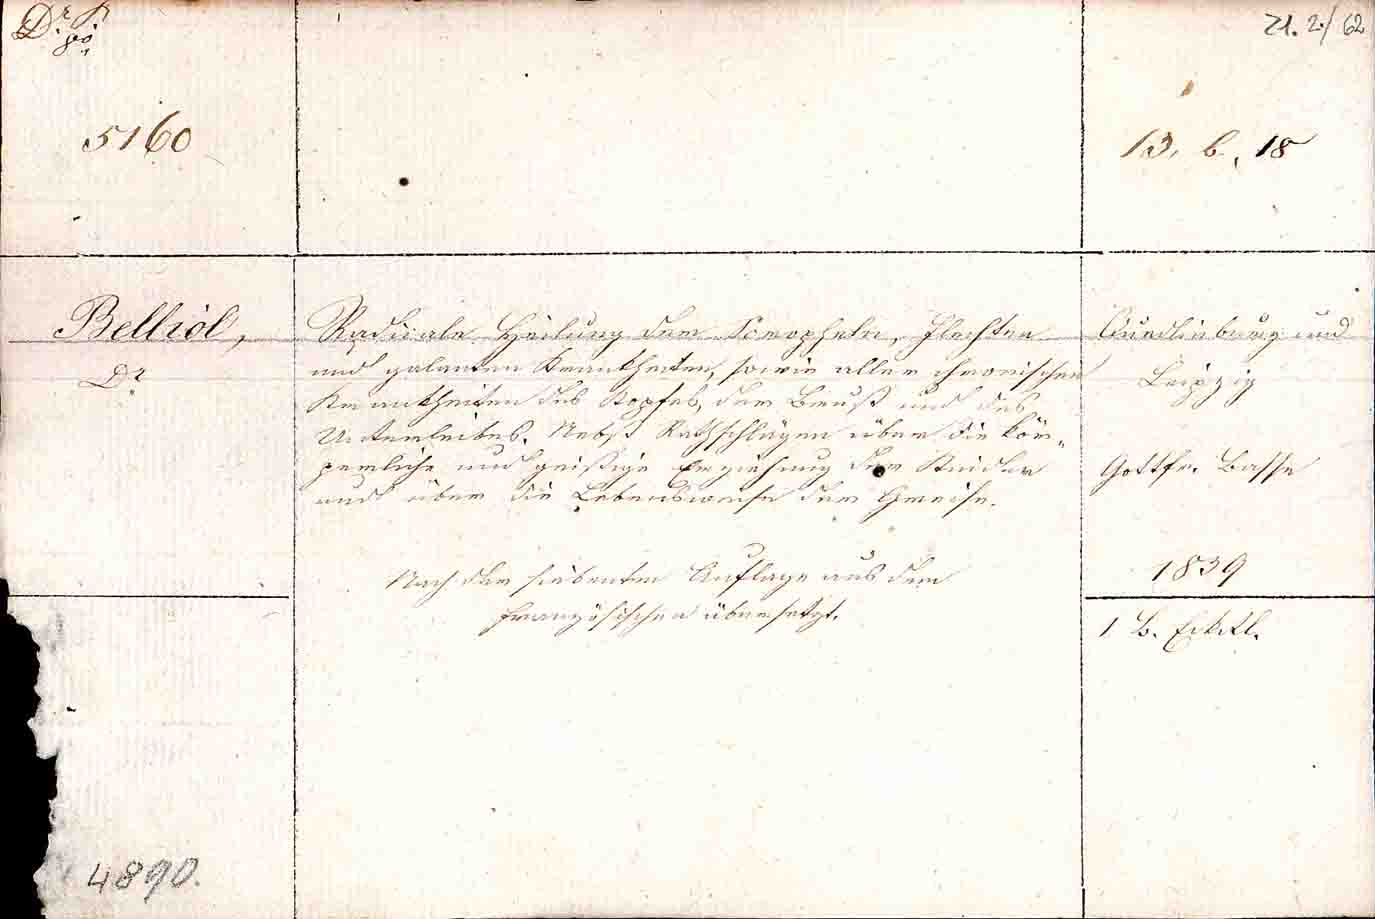 Dr
21. 2./62
5160
13. b. 18
Belliol,
Dr
Radicale Heilung der Scropheln, Flechten
und galanten Krankheiten, sowie aller chronischen
Krankheiten des Kopfes, der Brust und des
Unterleibes. Nebst Rathschlägen über die kör-
perliche und geistige Erziehung der Kinder
und über die Lebensweise der Greise.
Nach der siebenten Auflage aus dem
Französischen übersetzt.
Quedlinburg und
Leipzig
Gottfr. Basse
1839
1 B.
4890.